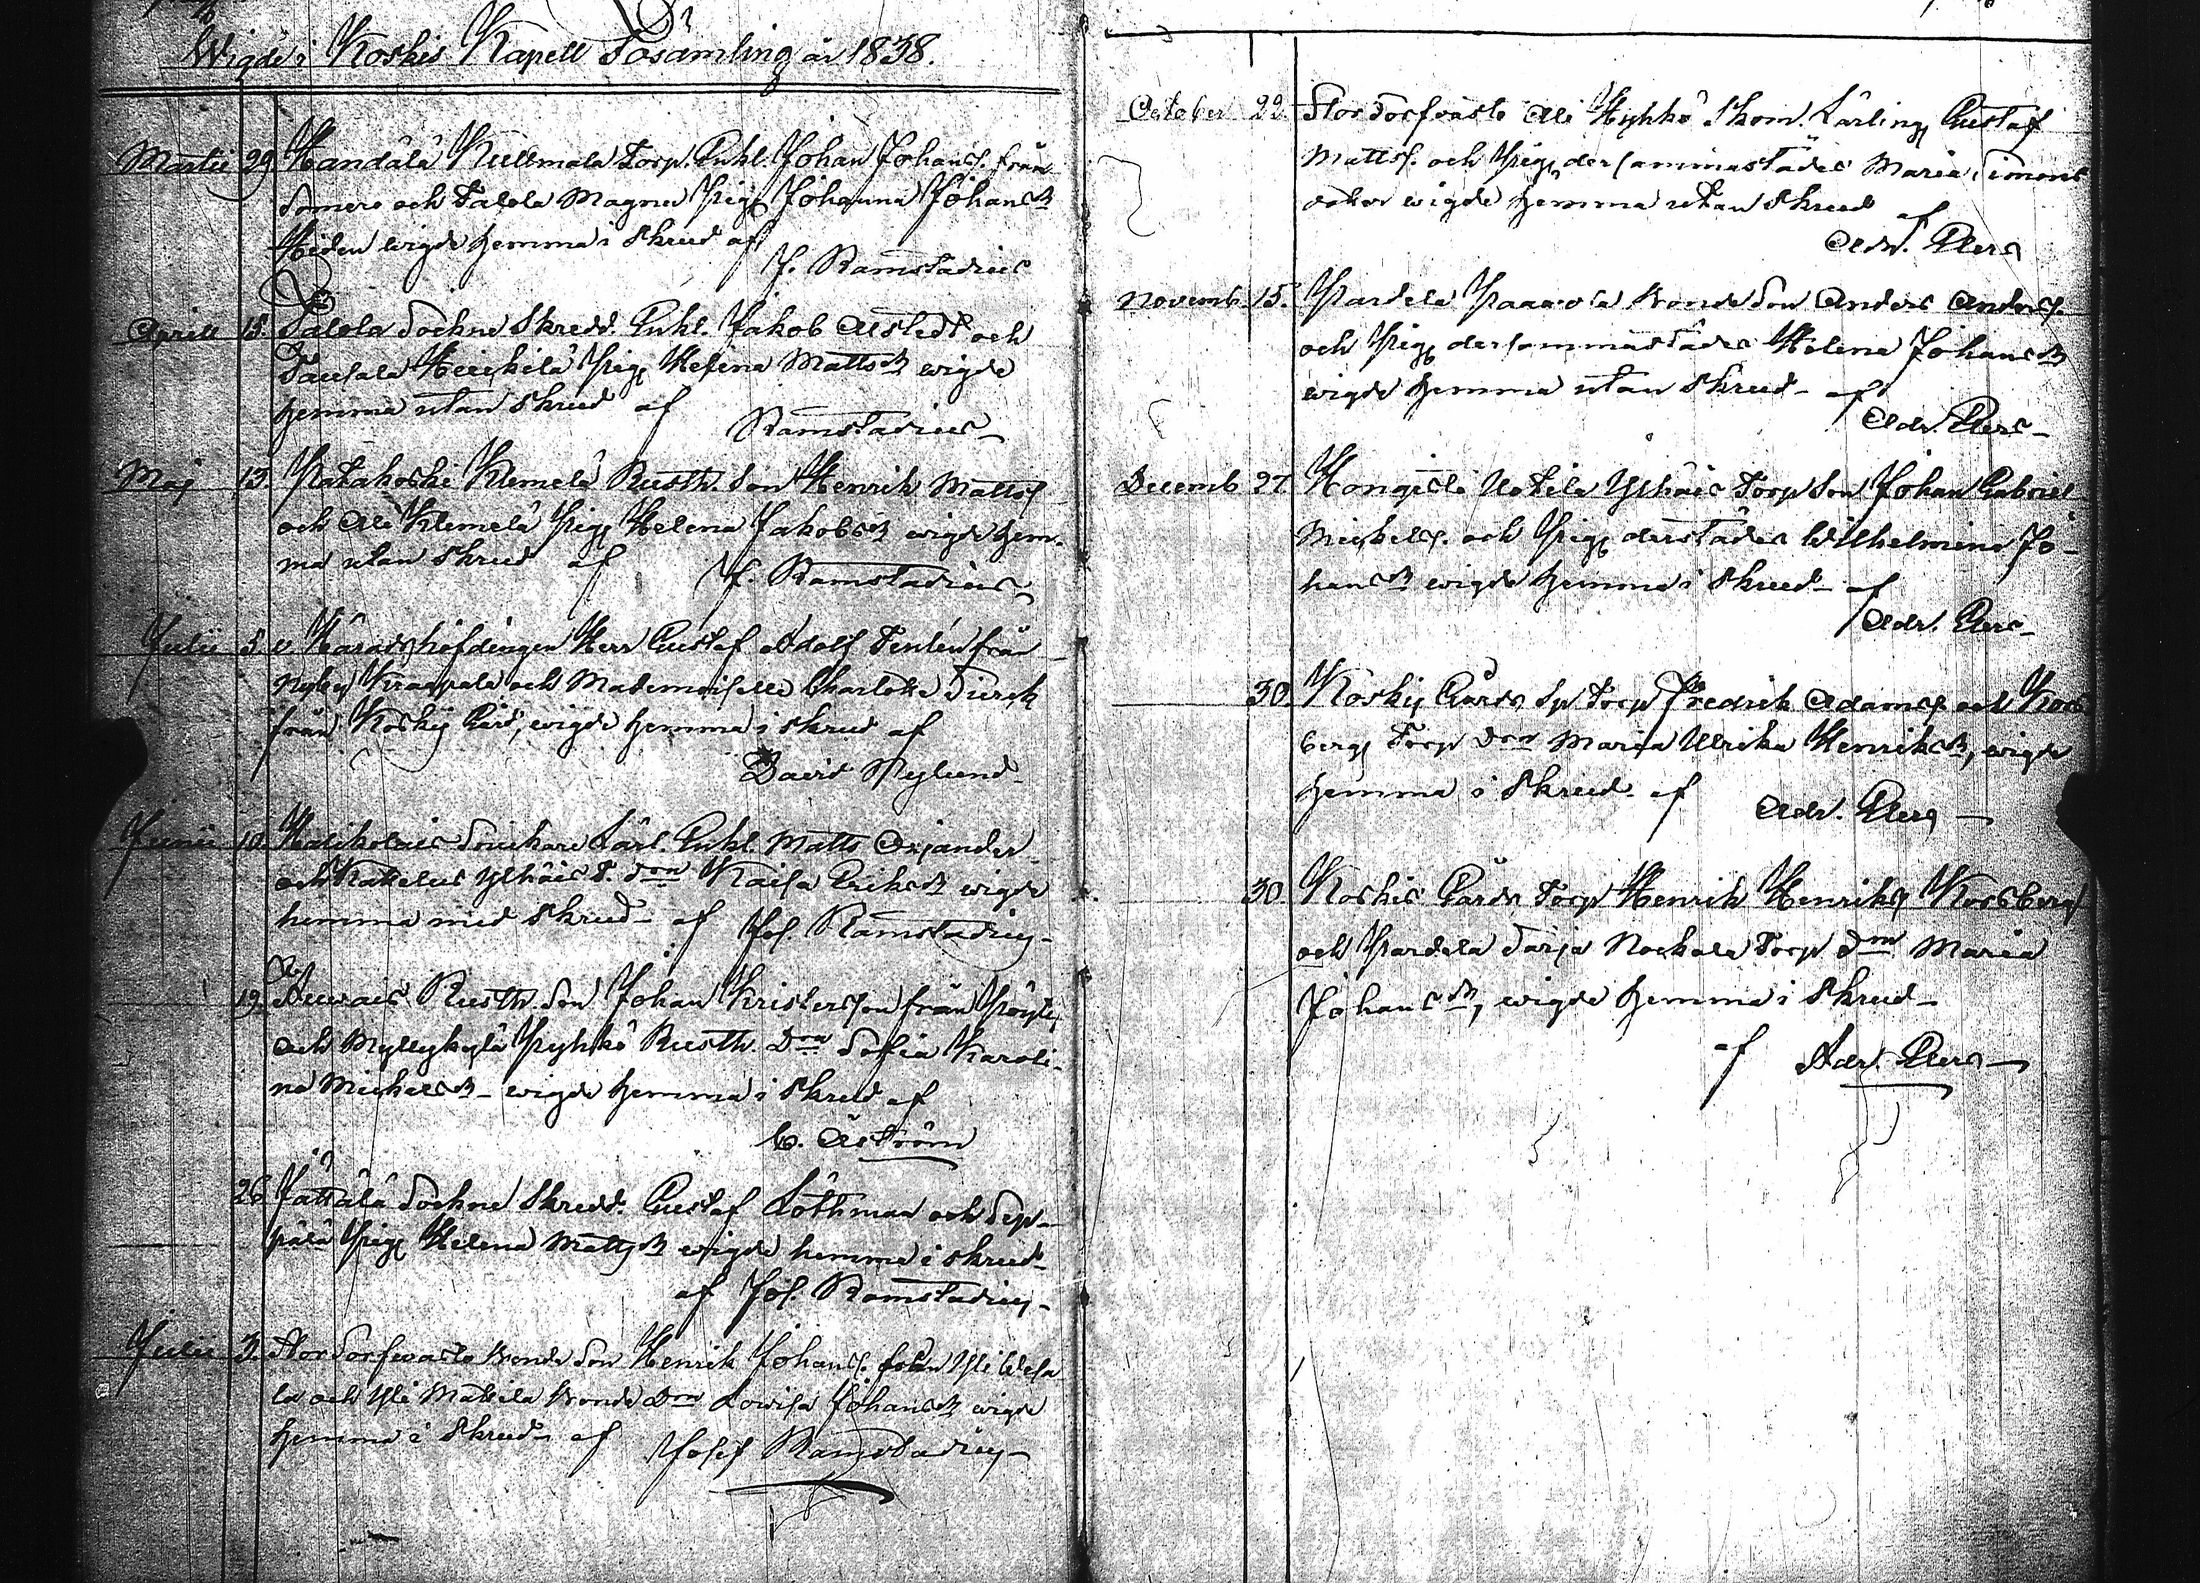 Wigde i Koskis Kapell Församling år 1838.
Martii 29 Handälä Kullmala Torp. Enkl. Johan Johanss. från
Somero och Talola Magnu Pig. Johanna Johansdr
Heiden wigde hemma i skrud af
J. Ramstadius
Aprill 15. Talola Sockne Skredd. Enkl. Jakob Alstedt och
Tausala Heickilä Pig. Helena Mattsdr wigde
hemma utan skrud af
Ramstadius
Maj 13. Patakoski Klemelä Rusth. Son Henrik Mattss.
och Ali Klemelä Pig. Helena Jakobsdr wigde hem-
ma utan skrud af J. Ramstadius
Julii 5. v. Häradshöfdingen Herr Gustaf Adolf Tenlén från
Nyby Kraapala och Mademoiselle Charlotte Dierck
från Koskis Gård, wigde hemma i skrud af
David Nylund
Junii 10. Halikolais Souckare Lärl. Enkl. Matts Oxjander
och Kattelus Ylhäis T. Don Kaisa Eriksdr wigde
hemma med skrud af Jos. Ramstadius
19. Auwais Rusth. Son Johan Kristersson från Pöytis
och Myllykylä Pyhkö Rusth. Don Sofia Karoli-
na Michelsdr wigde hemma i skrud af
C. Åström
26. Jättälä Sockne Skredd. Gustaf Löthman och Sep-
pälä Pig. Helena Mattsdr wigde hemma i skrud
af Jos. Ramstadius
Julii 3. Stor Sorfwasto Bonde Son Henrik Johanss. från Yli Wesa
la och Yli Mattila Bonde Don Lowisa Johansdr wigde
hemma i skrud af Josef Ramstadius
October 22. Stor Sorfvasto Ali Hyhkö Skom. Lärling Gustaf
Mattss. och Pig. dersammastädes Maria Simons
dotter wigde hemma utan skrud af
Adr. Elers
Novemb. 15. Pardela Paavola Bonde Son Anders Anderss.
och Pig. dersammastädes Helena Johansdr
wigde hemma utan skrud af
Adr. Elers
Decemb. 27. Hongisto Uotila Ylhäis Torp Son Johan Gabriel
Michelss. och Pig. derstädes Wilhelmina Jo-
hansdr wigde hemma i skrud af
Adr. Elers
30. Koskis Gårds Sp Torp Fredrik Adamss. och Kors
berg Torp Don Maria Ulrika Henriksdr, wigde
hemma i skrud af Adr. Elers
30. Koskis Gårds Torp Henrik Henrikss. Korsberg
och Pardela Tarja Nockala Torp Don Maria
Johansdr, wigde hemma i skrud
af Adr. Elers